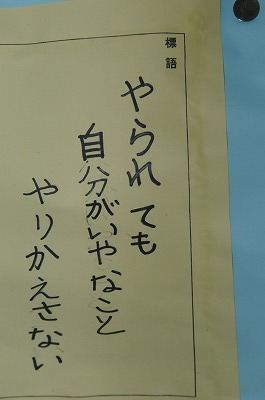 標語
やられても
自分がいやなこと
やりかえさない